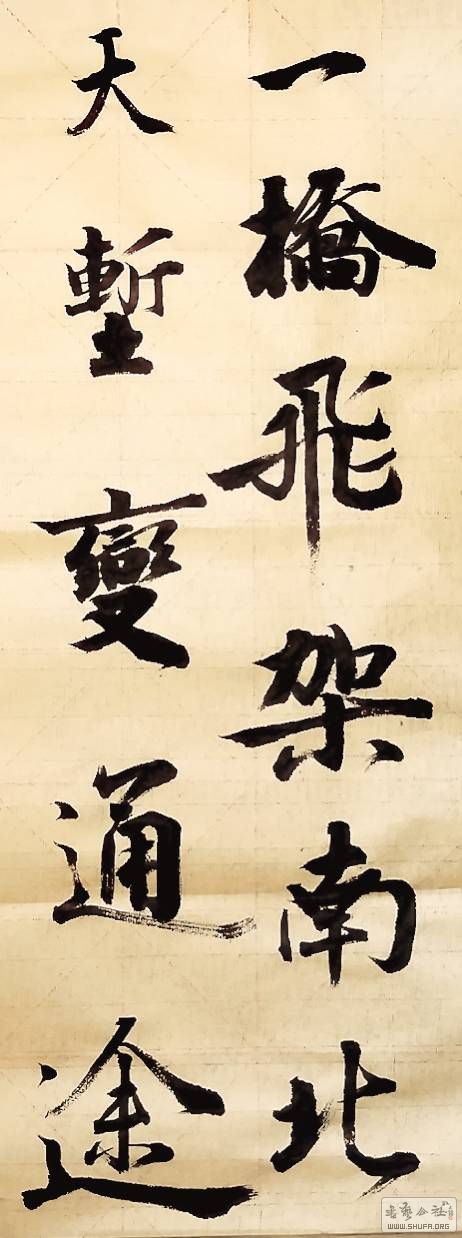 一橋飛架南北
天塹變通途
書藝公社
WWW.SHUFA.ORG